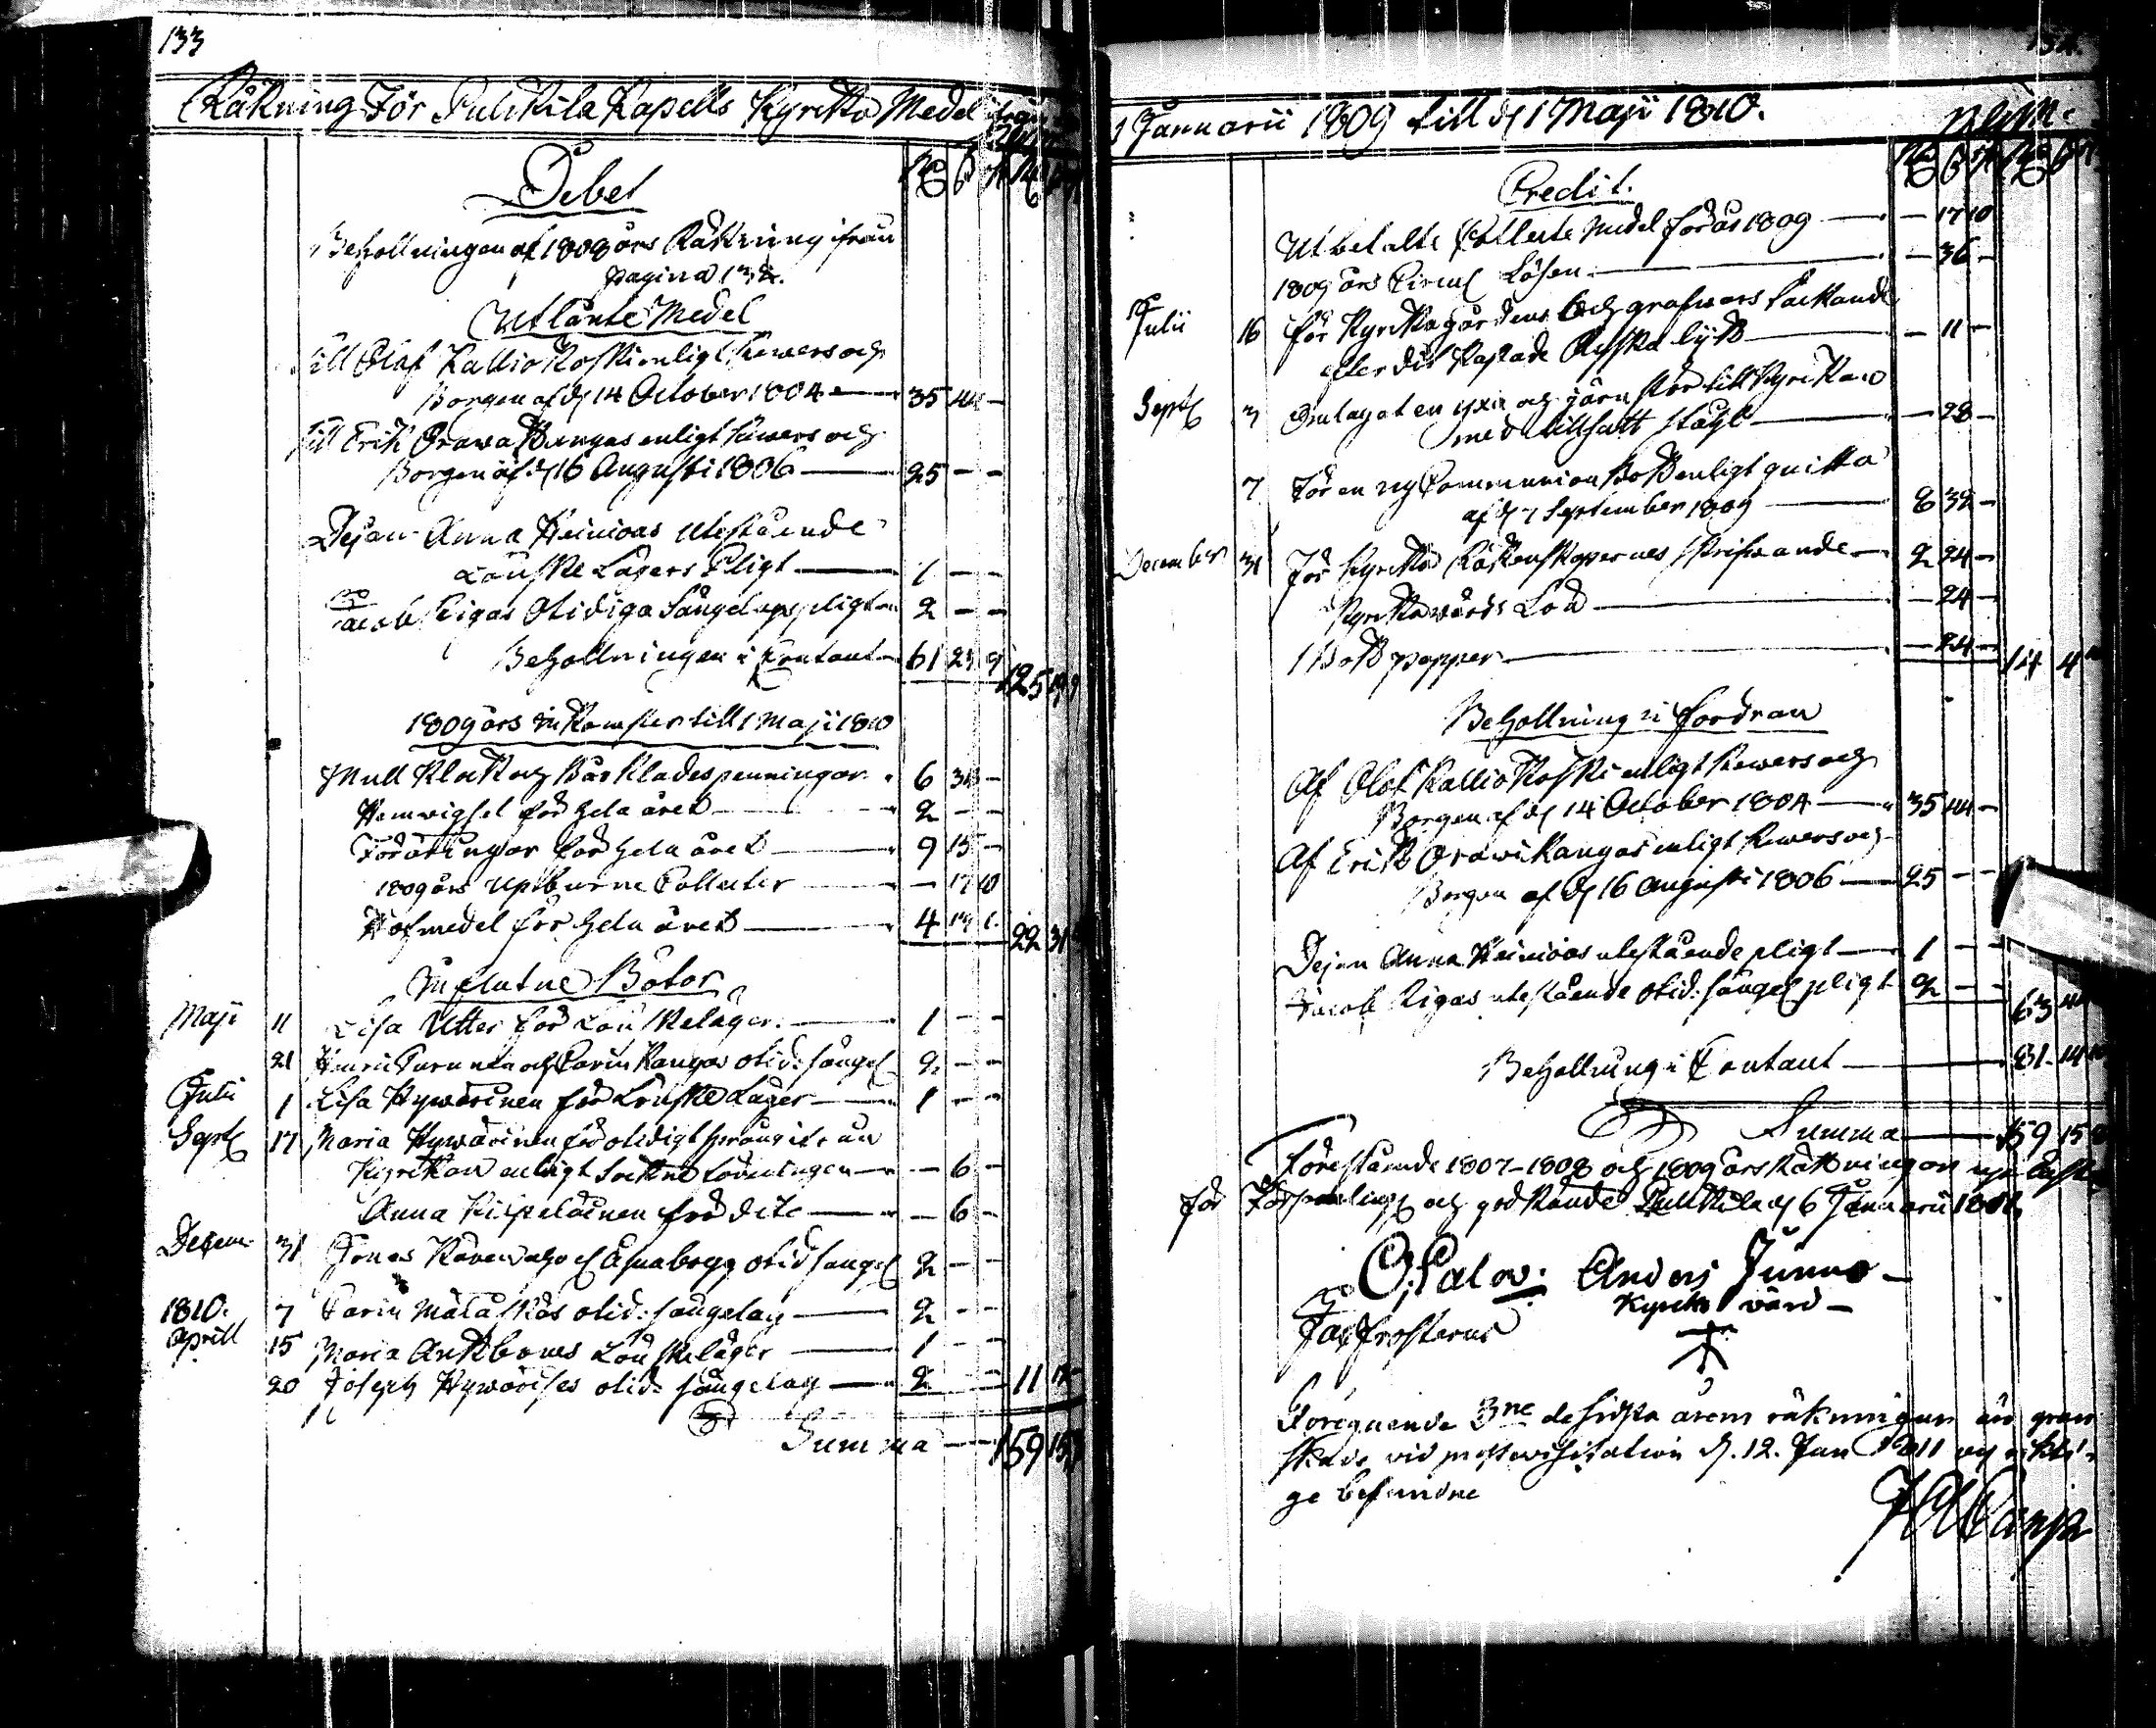 133
Räkning För Pulkkila Kapells Kyrko Medel ifrån
Debet
Behollningen af 1808 års Räkning ifrån
pagina 132.
Utlånte Medel
Till Olof Kallio Koski enligt Rewers och
Borgen af d 14 October 1804 — 35 44 —
Till Erik Orawa Kangas enligt Rewers och
Borgen af d 16 Augusti 1806 — 25 — —
Pejan Anna Heinioas utestående
Lönske Lägers Pligt — 1 — —
Jacob Pigas Otidiga Sängelags pligt — 2 — —
Behollningen i Contant — 61 23 9 125 19 9
1809 års inkomster till 1 Maji 1810
Mull Klock och Bårklädespenningar 6 36 —
Hemvigsel för hela året — 2 — —
Föräringar för hela året — 9 15 —
1809 års Upburne Collecter — — 17 10
Håfmedel för hela året — 4 14 6 22 31
Influtne Böter
Maji 11 Lisa Utter för Lönskeläger — 1 — —
21 Henric Turunen och Carin Kangas otid: sängel 2 — —
Julii 1 Lisa Hywärinen för Lönske Läger — 1 — —
Sept 17 Maria Hywärinen för otidigt språng utur
Kyrkan enligt Sockne Stämningen — — 6 —
Anna Kispeläinen för dito — — 6 —
Decem 31 Jonas otid sängel 2 — —
1810. 7 Carin Mätäskäs otid: sängelag — 2 — —
Aprill 15 Maria Lönskeläger — 1 — —
20 Joseph Hywärises otid: sängelag — 2 — — 11 12
Summa — 159 15
1 Januarii 1809 till d 1 Maji 1810.
Credit.
Utbetalte Collecte Medel för år 1809 — — 17 10
1809 års Circul Lösen — — 36 —
Julii 16 för Kyrkogårdens och grafwars täckande
efter dit kastade Ryska lijk — — 11 —
Sept 3 Omlagat en yxa och järn stör till Kyrkan
med tillsatt stål — — 28 —
7 För en ny Communion Bok enligt quitto
af d 7 September 1809 — 8 32 —
December 31 För Kyrko Räkenskapernes skrifwande — 2 24 —
Kyrkowärds Lön — — 24 —
1 Bok papper — — 24 — 14 4
Behollning i fordran
Af Olof Kallio Koski enligt Rewers och
Borgen af d 14 October 1804 — 35 44 —
Af Erik Orawi Kangas enligt Rewers och
Borgen af d 16 Augusti 1806 — 25 — —
Pejan Anna Heinioas utestående pligt — 1 — —
Jacob Pigas utestående otid: sängel pligt 2 — — 63 44
Behollning i Contant — 81 14
Summa — 159 15
Förestående 1807–1808 och 1809 års Räkningar
för och godkände Pulkkila d 6 Januarii
Anders Junno
Kyrko värd —
Jac Frosterus
Föregående 3ne de sidsta årens räkningar äro gran
skade vid prostevisitation d. 12. Jan 1811 och rikti
ge befundne